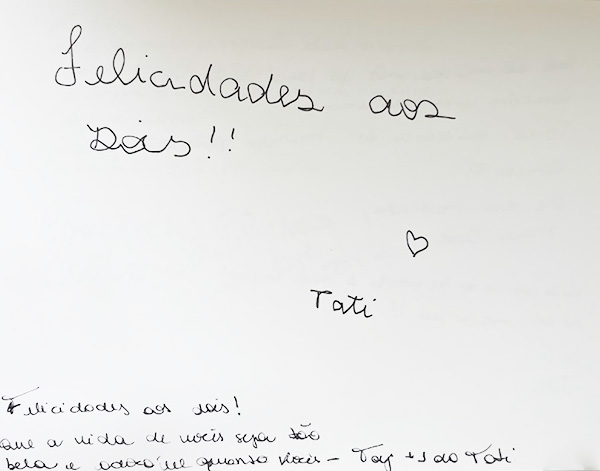 Felicidades aos
Dois!!
♡
Tati
Felicidades aos dois!
que a vida de vocês seja tão
bela e adorável quanto vocês - Tay +1 do Tati